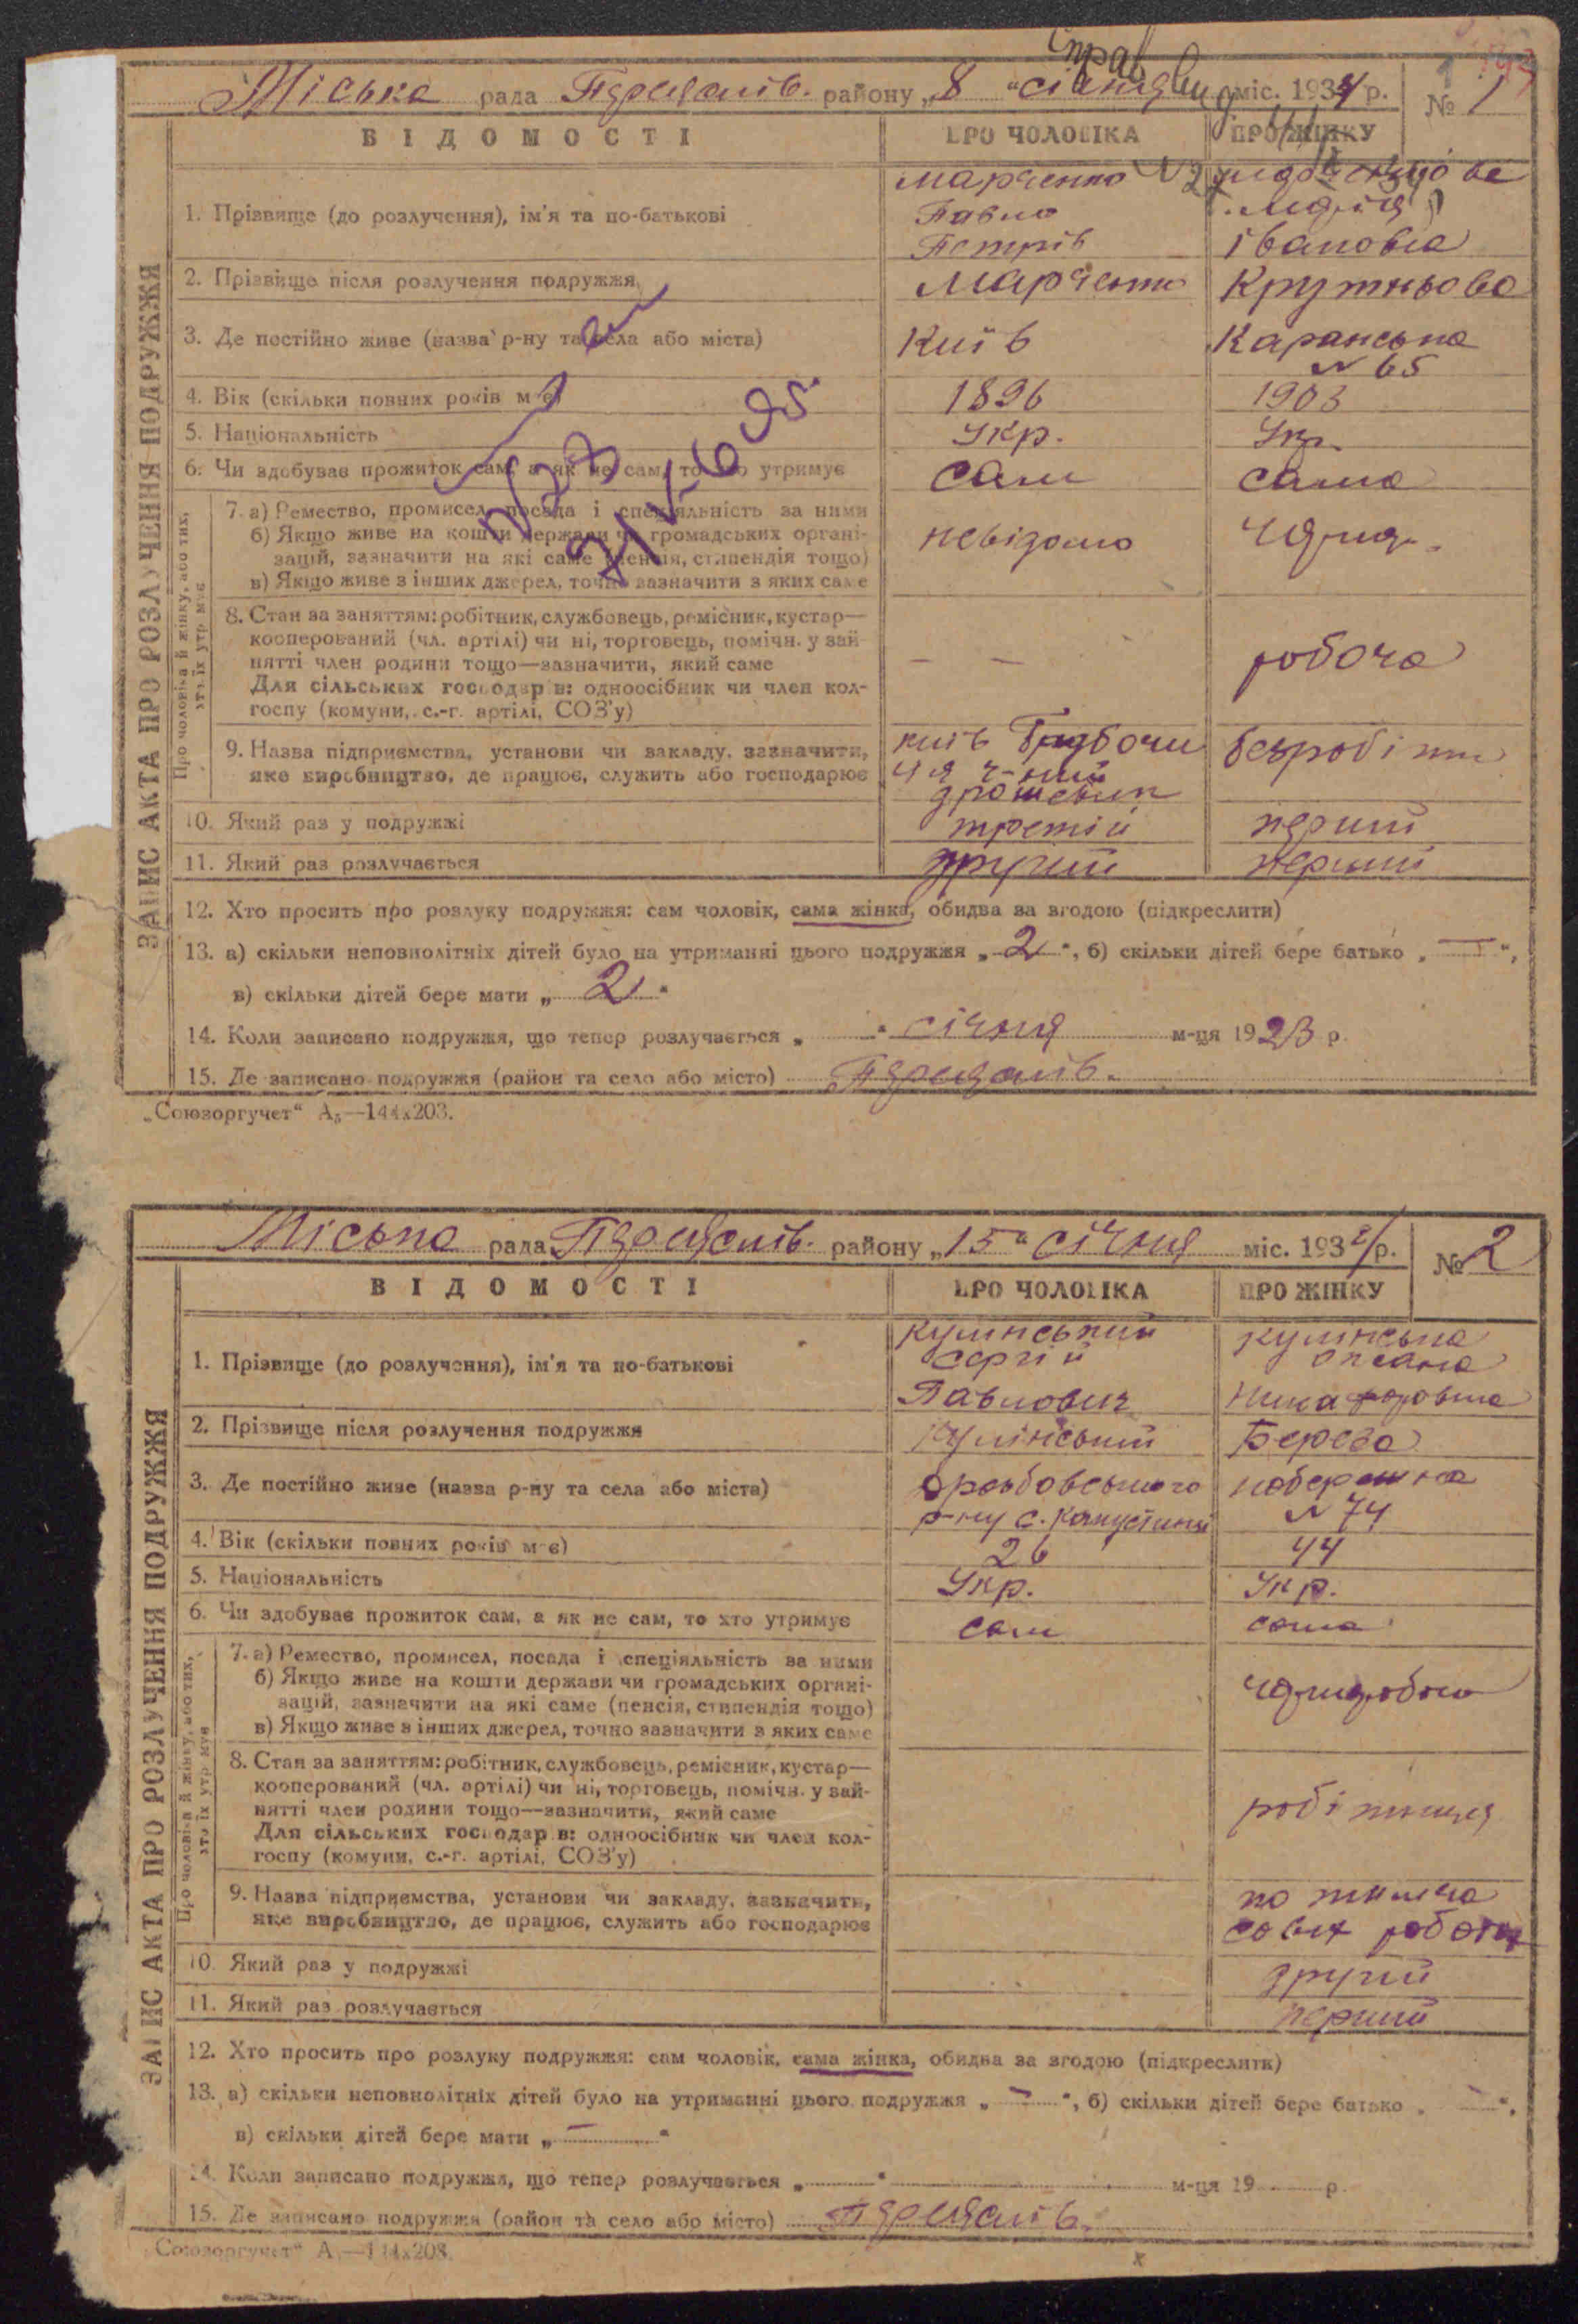 Міська рада Переяслів. району „8 “ січня міс. 1934 р. № 1
ВІДОМОСТІ ПРО ЧОЛОВІКА ПРО ЖІНКУ
ЗАПИС АКТА ПРО РОЗЛУЧЕННЯ ПОДРУЖЖЯ
1. Прізвище (до розлучення), ім'я та по-батькові
Марченко
Павло Марія
Петрів Івановна
2. Прізвище після розлучення подружжя Марченко Крутньова
3. Де постійно живе (назва р-ну та села або міста) Київ Каранська
№ 65
4. Вік (скільки повних років має) 1896 1903
5. Національність Укр. Укр.
6. Чи здобуває прожиток сам, а як не сам, то хто утримує сам сама
Про чоловіка й жінку, або тих, хто їх утримує
7. а) Ремество, промисел, посада і спеціяльність за ними
б) Якщо живе на кошти держави чи громадських органі- невідомо
зацій, зазначити на які саме (пенсія, стипендія тощо)
в) Якщо живе з інших джерел, точно зазначити з яких саме
8. Стан за заняттям: робітник, службовець, ремісник, кустар—
кооперований (чл. артілі) чи ні, торговець, помічн. у зай-
нятті член родини тощо—зазначити, який саме — — робоча
Для сільських господарів: одноосібник чи член кол-
госпу (комуни, с.-г. артілі, СОЗ'у)
9. Назва підприємства, установи чи закладу, зазначити, Київ безробітн
яке виробництво, де працює, служить або господарює
10. Який раз у подружжі третій перший
11. Який раз розлучається другий перший
12. Хто просить про розлуку подружжя: сам чоловік, сама жінка, обидва за згодою (підкреслити)
13. а) скільки неповнолітніх дітей було на утриманні цього подружжя „ 2 “, б) скільки дітей бере батько „ — “,
в) скільки дітей бере мати „ 2 “
14. Коли записано подружжя, що тепер розлучається „ “ січня м-ця 1923 р.
15. Де записано подружжя (район та село або місто) Переяслів.
„Союзоргучет“ А₅—144х203.
Міська рада Переяслів. району „15“ січня міс. 1934 р. № 2
ВІДОМОСТІ ПРО ЧОЛОВІКА ПРО ЖІНКУ
ЗАПИС АКТА ПРО РОЗЛУЧЕННЯ ПОДРУЖЖЯ
Кулінський Кулінська
1. Прізвище (до розлучення), ім'я та по-батькові Сергій Оксана
Павлович Никафоровна
2. Прізвище після розлучення подружжя Кулінський Береза
3. Де постійно живе (назва р-ну та села або міста) набережна
р-ну с. Капустинці № 74
4. Вік (скільки повних років має) 26 44
5. Національність Укр. Укр.
6. Чи здобуває прожиток сам, а як не сам, то хто утримує сам сама
Про чоловіка й жінку, або тих, хто їх утримує
7. а) Ремество, промисел, посада і спеціяльність за ними
б) Якщо живе на кошти держави чи громадських органі- чорнороб
зацій, зазначити на які саме (пенсія, стипендія тощо)
в) Якщо живе з інших джерел, точно зазначити з яких саме
8. Стан за заняттям: робітник, службовець, ремісник, кустар—
кооперований (чл. артілі) чи ні, торговець, помічн. у зай-
нятті член родини тощо—зазначити, який саме робітниця
Для сільських господарів: одноосібник чи член кол-
госпу (комуни, с.-г. артілі, СОЗ'у)
9. Назва підприємства, установи чи закладу, зазначити, по тимча
яке виробництво, де працює, служить або господарює сових роботах
10. Який раз у подружжі другий
11. Який раз розлучається перший
12. Хто просить про розлуку подружжя: сам чоловік, сама жінка, обидва за згодою (підкреслити)
13. а) скільки неповнолітніх дітей було на утриманні цього подружжя „ — “, б) скільки дітей бере батько „ — “,
в) скільки дітей бере мати „ — “
14. Коли записано подружжя, що тепер розлучається „ “ м-ця 19 р.
15. Де записано подружжя (район та село або місто) Переяслів.
„Союзоргучет“ А₅—144х203.